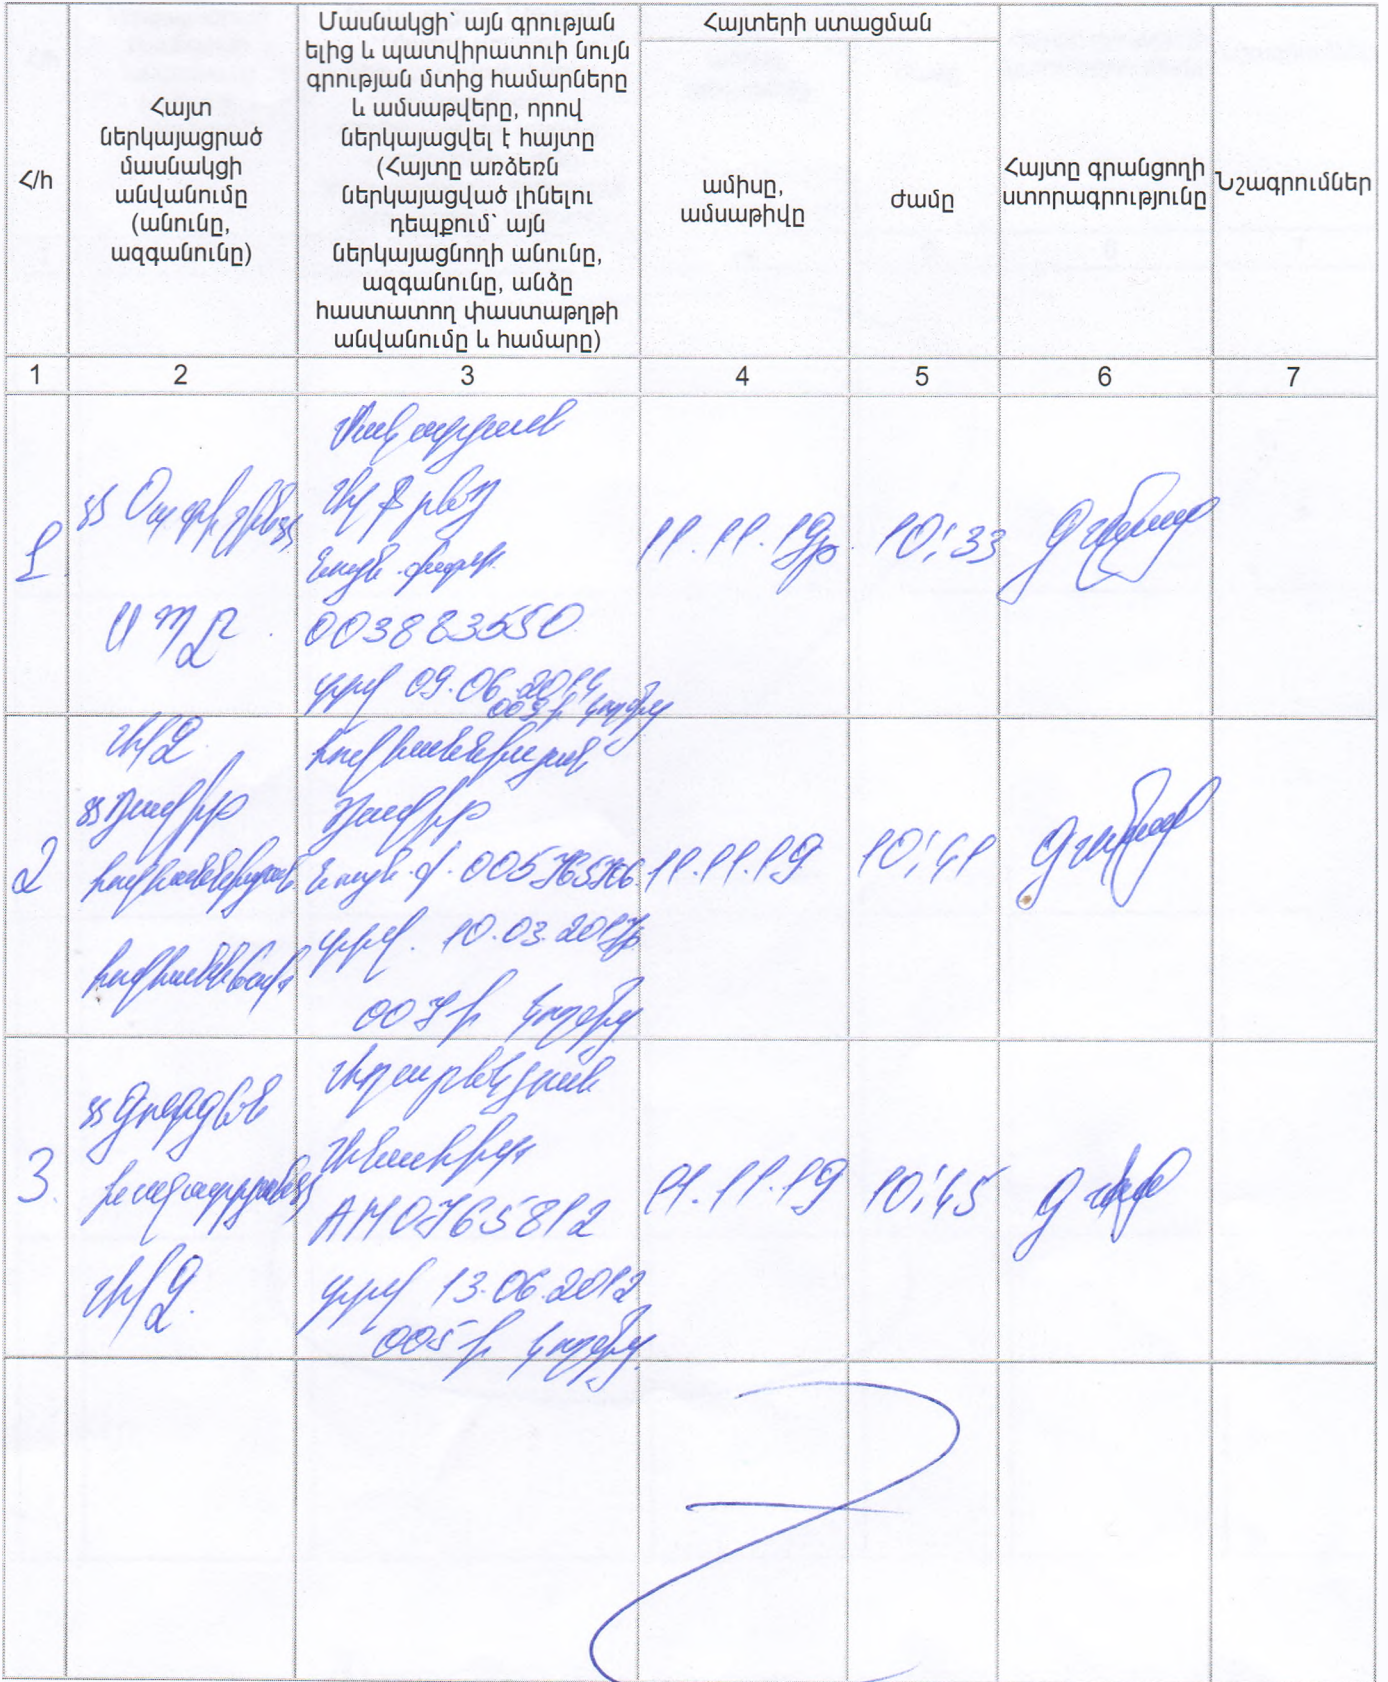 Հ/հ
Հայտ
ներկայացրած
մասնակցի
անվանումը
(անունը,
ազգանունը)
Մասնակցի` այն գրության
ելից և պատվիրատուի նույն
գրության մտից համարները
և ամսաթվերը, որով
ներկայացվել է հայտը
(Հայտը առձեռն
ներկայացված լինելու
դեպքում` այն
ներկայացնողի անունը,
ազգանունը, անձը
հաստատող փաստաթղթի
անվանումը և համարը)
Հայտերի ստացման
ամիսը,
ամսաթիվը
ժամը
Հայտը գրանցողի
ստորագրությունը
Նշագրումներ
1 2 3 4 5 6 7
1
ՍՊԸ
003883550
տրվ 09.06.2014
009-ի կողմից
11.11.19թ
10:33
2
ԱՁ
«Դավիթ
Հովհաննիսյան
Հովհաննեսի
Հովհաննիսյան
Դավիթ
նույն. ք. 005765706
տրվ. 10.03.2017թ
007-ի կողմից
11.11.19
10:41
3.
«Գուրգեն
ԱՁ
AM0765812
տրվ 13.06.2012
005-ի կողմից
11.11.19
10:45